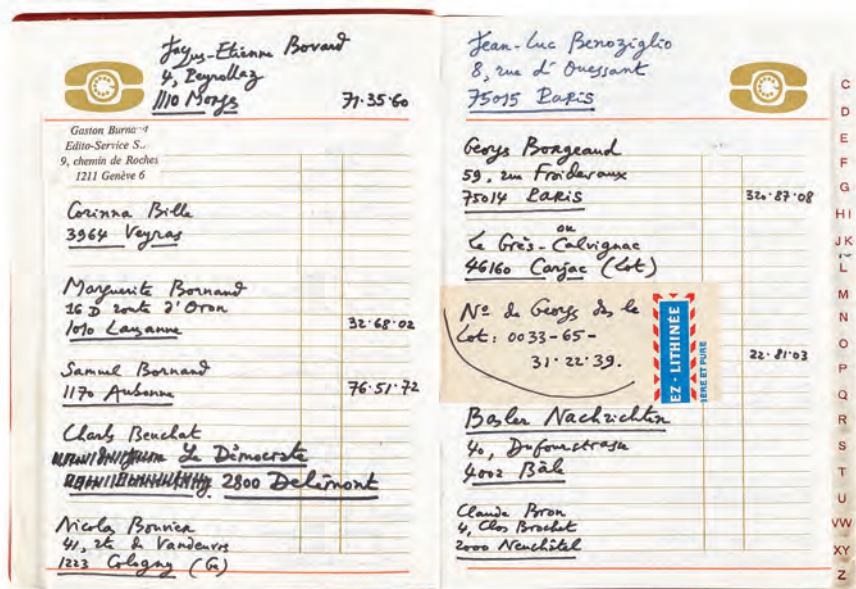 Jaques-Etienne Bovard
4, Peyrollaz
1110 Morges 71.35.60
Gaston Burna
Edito-Service S..
9, chemin de Roches
1211 Genève 6
Corinna Bille
3964 Veyras
Marguerite Bornand
16 D route d'Oron
1010 Lausanne 32.68.02
Samuel Bornand
1170 Aubonne 76.51.72
Charles Beuchat
Le Démocrate
2800 Delémont
Nicolas Bouvier
41, rte de Vandœuvres
1223 Cologny (Ge)
Jean-Luc Benoziglio
8, rue d'Ouessant
75015 Paris
Georges Borgeaud
59, rue Froidevaux
75014 Paris 320.87.08
ou
Le Grès-Calvignac
46160 Carjac (Lot)
No de Georges ds le
Lot : 0033-65-
31.22.39.
EZ - LITHINÉE
ÈRE ET PURE
22.81.03
Basler Nachrichten
40, Dufourstrasse
4002 Bâle
Claude Bron
4, Clos Brochet
2000 Neuchâtel
C
D
E
F
G
HI
JK
L
M
N
O
P
Q
R
S
T
U
VW
XY
Z